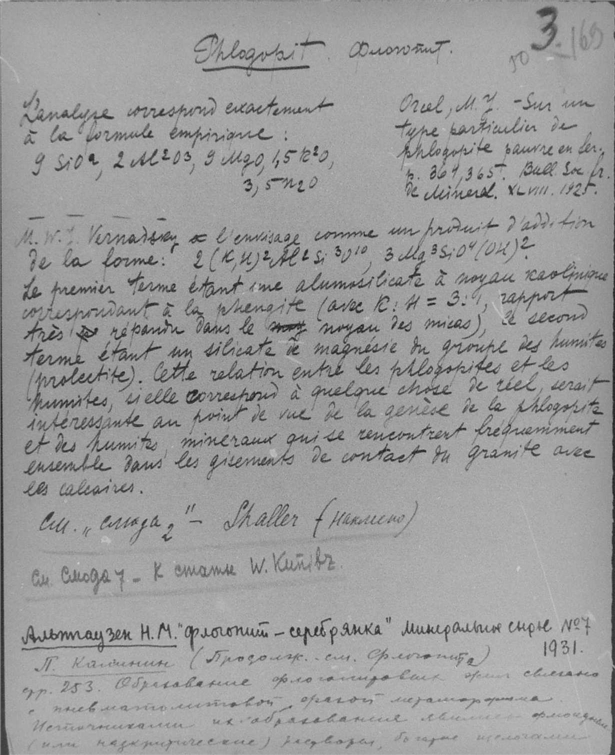 3.
50
169
Phlogopit. Флогопит.
L'analyse correspond exactement
à la formule empirique:
9 SiO2, 2 Al2O3, 9 MgO, 1,5 K2O,
3,5 H2O
Orcel, M. J. – Sur un
type particulier de
phlogopite pauvre en fer.
p. 364, 365. Bull. Soc. fr.
de Minéral. XLVIII. 1925.
M. W. J. Vernadsky l'envisage comme un produit d'addition
de la forme: 2(K,H)2Al2Si3O10, 3Mg3SiO4(OH)2.
Le premier terme étant un alumosilicate à noyau kaolinique
correspondant à la phengite (avec K:H = 3:1, rapport
très répandu dans le noyau des micas), le second
terme étant un silicate de magnésie du groupe des humites
(prolectite). Cette relation entre les phlogopites et les
humites, si elle correspond à quelque chose de réel, serait
intéressante au point de vue de la genèse de la phlogopite
et des humites, mineraux qui se rencontrent fréquemment
ensemble dans les gisements de contact du granite avec
les calcaires.
См. „слюда 2" – Shaller (наклено)
см. Слюда 7 – К статье W. Кипівъ
Альтгаузен Н.М. "Флогопит – серебрянка" Минеральное сырье №7
1931.
П. Калинин (Продолж. см. Флогопита)
стр. 253. Образование флогопитовых жил связано
с пневматолитовой фазой метаморфизма.
Источниками их образования явились флюидные
(или надкритические) растворы, богатые щелочами